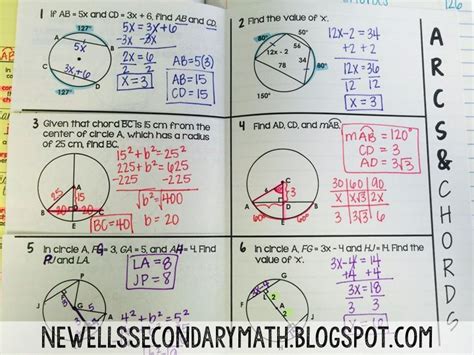 126
1 If AB = 5x and CD = 3x + 6, find AB and CD.
127°
A
B
5x
3x+6
C
D
127°
5x = 3x+6
-3x -3x
2x = 6
2 2
x = 3
AB = 5(3)
AB = 15
CD = 15
2 Find the value of 'x'.
80°
12x - 2
56
78
34
80°
150°
12x-2 = 34
+2 +2
12x = 36
12 12
x = 3
3 Given that chord BC is 15 cm from the
center of circle A, which has a radius
of 25 cm, find BC.
25
A
15
B
20
D
20
C
15² + b² = 25²
225 + b² = 625
-225 -225
√b² = √400
b = 20
BC = 40
4 Find AD, CD, and mAB.
6
3
A
D
B
60°
60°
C
mAB = 120°
CD = 3
AD = 3√3
30 60 90
x x√3 2x
3 3√3 6
5 In circle A, FG = 3, GA = 5, and AH = 4. Find
PJ and LA.
LA = 8
JP = 8
P
F
G
5
J
6 In circle A, FG = 3x - 4 and HJ = 14. Find
the value of 'x'.
3x-4 = 14
+4 +4
3x = 18
3 3
F
G
2
A
J
ARCS & CHORDS
NEWELLSSECONDARYMATH.BLOGSPOT.COM